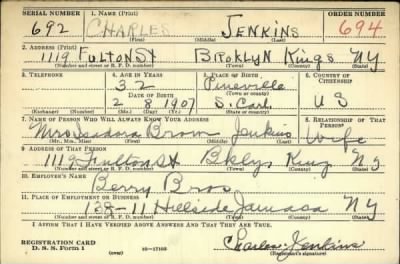 SERIAL NUMBER 1. NAME (Print) ORDER NUMBER
692 CHARLES JENKINS 694
(First) (Middle) (Last)
2. ADDRESS (Print)
1119 FULTON St BROKLYN Kings NY
(Number and street or R. F. D. number) (Town) (County) (State)
3. TELEPHONE 4. AGE IN YEARS 5. PLACE OF BIRTH 6. COUNTRY OF CITIZENSHIP
32 Pineville
DATE OF BIRTH (Town or county)
2 8 1907 S. Carl. U S
(Exchange) (Number) (Mo.) (Day) (Yr.) (State or country)
7. NAME OF PERSON WHO WILL ALWAYS KNOW YOUR ADDRESS 8. RELATIONSHIP OF THAT PERSON
Mrs Isadora Brown Jenkins Wife
(Mr., Mrs., Miss) (First) (Middle) (Last)
9. ADDRESS OF THAT PERSON
1119 Fulton St Bklyn King NY
(Number and street or R. F. D. number) (Town) (County) (State)
10. EMPLOYER'S NAME
Berry Bros
11. PLACE OF EMPLOYMENT OR BUSINESS
138-11 Hillside Jamaca NY
(Number and street or R. F. D. number) (Town) (County) (State)
I AFFIRM THAT I HAVE VERIFIED ABOVE ANSWERS AND THAT THEY ARE TRUE.
REGISTRATION CARD
D. S. S. Form 1 (over) 16—17105 Charles Jenkins
(Registrant's signature)